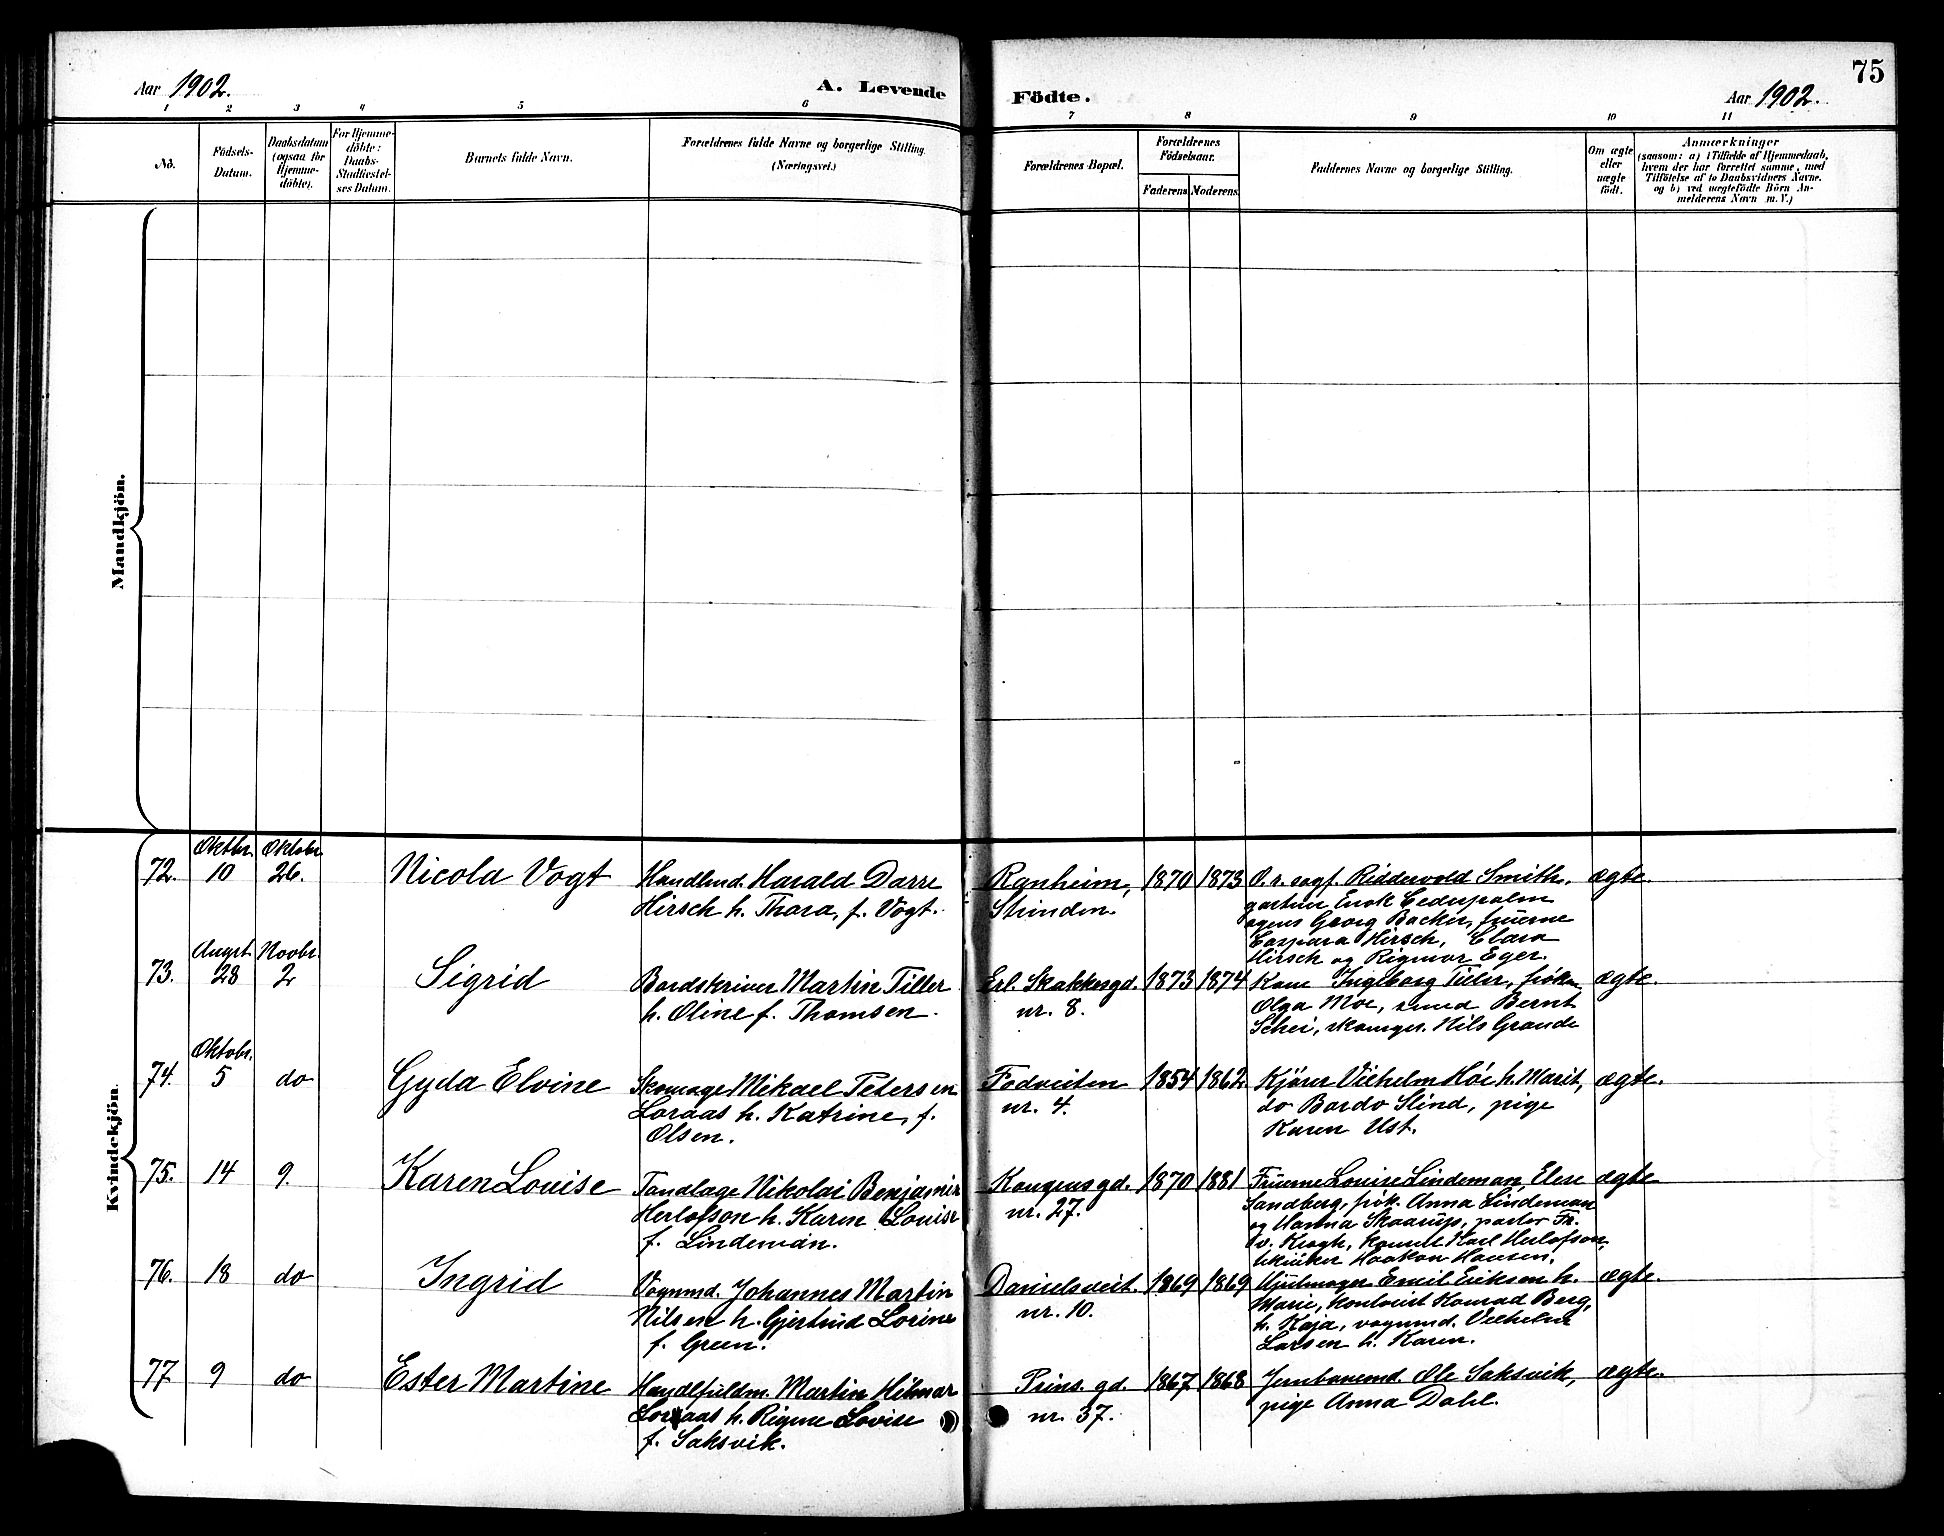 Aar 1902.
A. Levende Födte.
Aar 1902.
75
1 2 3 4 5 6 7 8 9 10 11
No.
Födsels-
Datum.
Daabsdatum
(ogsaa for
Hjemme-
döbte).
For Hjemme-
döbte:
Daabs-
Stadfæstel-
ses Datum.
Barnets fulde Navn.
Forældrenes fulde Navne og borgerlige Stilling.
(Næringsvei.)
Forældrenes Bopæl.
Forældrenes
Födselsaar.
Faderens.
Moderens.
Faddernes Navne og borgerlige Stilling.
Om ægte
eller
uægte
födt.
Anmærkninger
(saasom: a) i Tilfælde af Hjemmedaab,
hvem der har forrettet samme, med
Tilföielse af to Daabsvidners Navne,
og b) ved uægtefödte Börn An-
melderens Navn m. V.)
Mandkjön.
Kvindekjön
72.
Oktbr.
10
Oktobr.
26.
Nicola Vogt
Handlmd. Harald Darre
Hirsch h. Thora, f. Vogt.
Ranheim,
Strinden.
1870
1873
O.r. sagf. Ridderwold Smith,
gartner Enok Cederpalm
agent Georg Backer, fruerne
Caspara Hirsch, Clara
Hirsch og Rigmor Eger.
ægte.
73.
Augst.
28
Novbr.
2
Sigrid
Bordskriver Martin Tiller
h. Oline f. Thomsen.
Erl. Skakkesgd.
nr. 8.
1873
1874
Kone Ingeborg Tiller, frøken
Olga Moe, smed Bernt
Schei, skomgr. Nils Grande
ægte.
74.
Oktobr.
5
do
Gyda Elvine
Skomage Mikael Petersen
Loraas h. Katrine, f.
Olsen.
Fodveiten
nr. 4.
1854
1862
Kjörer Vilhelm Höe h. Marit,
do Bardo Slind, pige
Karen Ust.
ægte.
75.
14
9.
Karen Louise
Tandlæge Nikolai Benjamin
Herlofson h. Karen Louise
f. Lindeman.
Kongensgd.
nr. 27.
1870
1881
Fruerne Louise Lindeman, Elese
Sandberg, frøk. Anna Lindeman
og Hanna Skaarup, pastor Fr.
v. Krogh, Karl Herlofson,
tekniker Haakon Hansen.
ægte
76.
18
do
Ingrid
Vognmd. Johannes Martin
Nilsen h. Gjertrud Lorine
f. Green.
Danielsveit.
nr. 10.
1869
1869
Hjulmager Emil Eriksen h.
Marie, Konrad Berg,
h. Kaja, vognmd. Vilhelm
Larsen h. Karen.
ægte.
77
9
do
Ester Martine
Handlfuldm. Martin Hilmar
Loraas h. Rigme Lovise
f. Saksvik.
Prins. gd.
nr. 37.
1867
1868
Jernbanemd. Ole Saksvik,
pige Anna Dahl.
ægte.